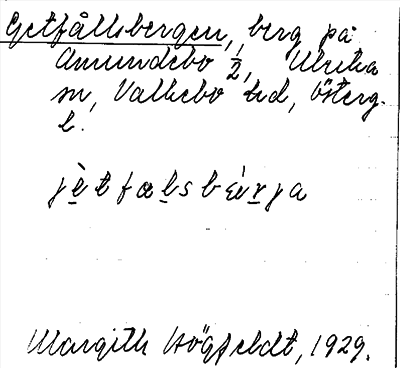 Getfållsbergen, berg på
Amundebo 1/2, Ulrika
sn, Valkebo hd, Österg.
l.
jètfalsbárja
Margith Högfeldt, 1929.